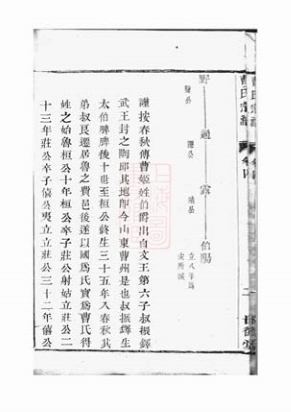 野
過
雲
伯陽
立八年為
宋所滅
謹按春秋傳曹姬姓伯爵出自文王第六子叔振鐸
武王封之陶邱其地即今山東曹州是也叔振鐸生
太伯脾脾後十世至桓公終生三十五年入春秋其
弟叔良遷居魯之費邑後遂以國為氏實為曹氏得
姓之始魯桓公十年桓公卒子莊公射姑立莊公二
十三年莊公卒子僖公夷立立莊公三十二年僖公